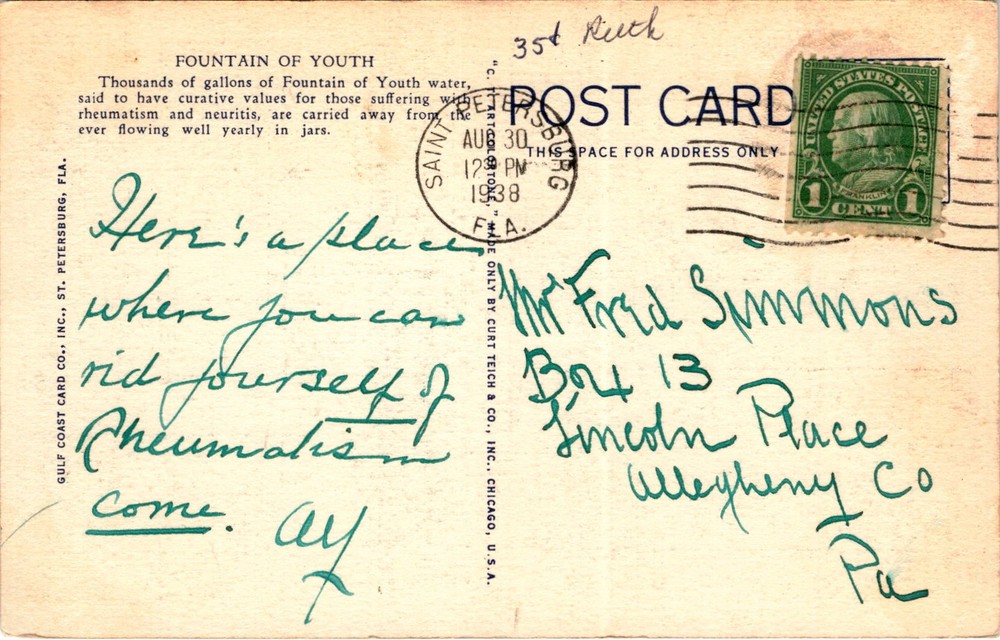 35¢ Ruth
FOUNTAIN OF YOUTH
Thousands of gallons of Fountain of Youth water,
said to have curative values for those suffering with
rheumatism and neuritis, are carried away from the
ever flowing well yearly in jars.
GULF COAST CARD CO., INC., ST. PETERSBURG, FLA.
"C. T. ART-COLORTONE," MADE ONLY BY CURT TEICH & CO., INC., CHICAGO, U.S.A.
POST CARD
THIS SPACE FOR ADDRESS ONLY
SAINT PETERSBURG
AUG 30
12 PM
1938
FLA.
UNITED STATES POSTAGE
FRANKLIN
1 CENT 1
Here's a place
where you can
rid yourself of
Rheumatism
come.
Mr Fred Simmons
Box 13
Lincoln Place
Allegheny Co
Pa